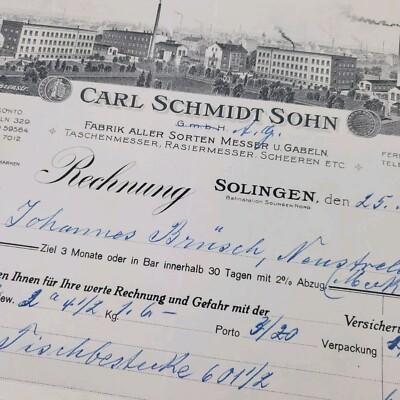 CARL SCHMIDT SOHN
G.m.b.H. A.G.
FABRIK ALLER SORTEN MESSER U. GABELN,
TASCHENMESSER, RASIERMESSER, SCHEEREN ETC.
ONTO
LN 329
59564
7012
MARKEN
FER
TELE
Rechnung
SOLINGEN, den 25.
Bahnstation Solingen-Nord
Johannes Brüsch, Neustrel
Ziel 3 Monate oder in Bar innerhalb 30 Tagen mit 2% Abzug
en Ihnen für Ihre werte Rechnung und Gefahr mit der
ew. 2 a 4 1/2 Kg. Porto 3/20 Verpackung
Versicheru
Tischbestecke 601 1/2